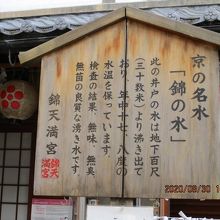 京の名水
「錦の水」
此の井戸の水は地下百尺
（三十数米）より湧き出て
おり、年中十七、八度の
水温を保っています。
検査の結果、無味、無臭
無菌の良質な湧き水です
錦天満宮
錦天
満宮
2020/09/30